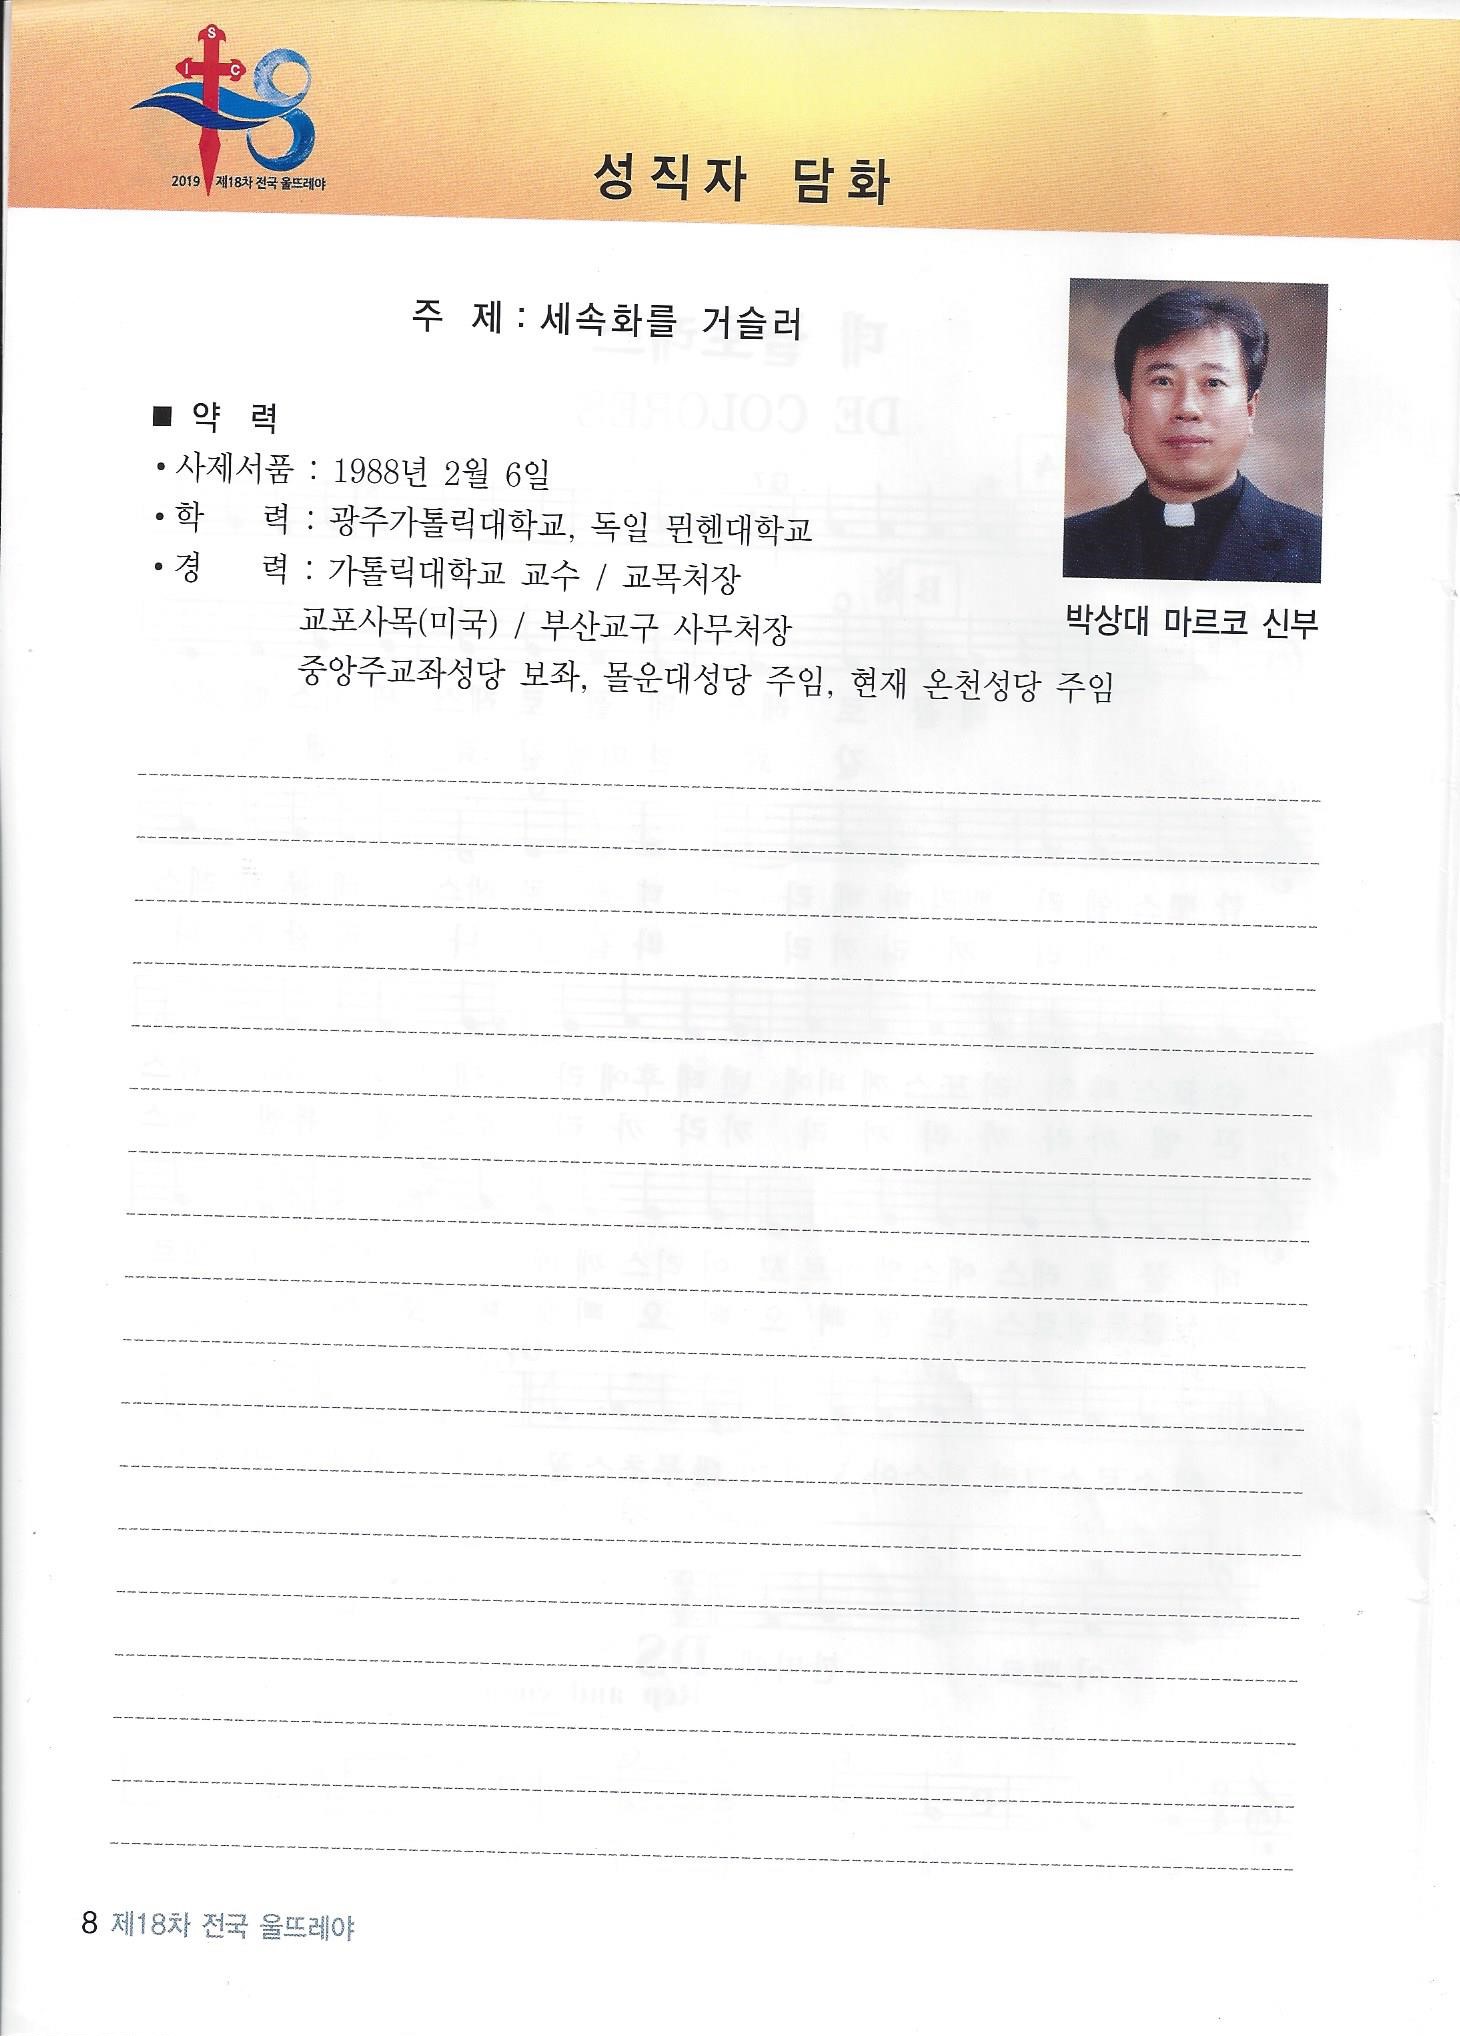 S
I C
2019 제18차 전국 울뜨레야
성직자 담화
주 제 : 세속화를 거슬러
■ 약 력
• 사제서품 : 1988년 2월 6일
• 학 력 : 광주가톨릭대학교, 독일 뮌헨대학교
• 경 력 : 가톨릭대학교 교수 / 교목처장
교포사목(미국) / 부산교구 사무처장
중앙주교좌성당 보좌, 몰운대성당 주임, 현재 온천성당 주임
박상대 마르코 신부
8 제18차 전국 울뜨레야